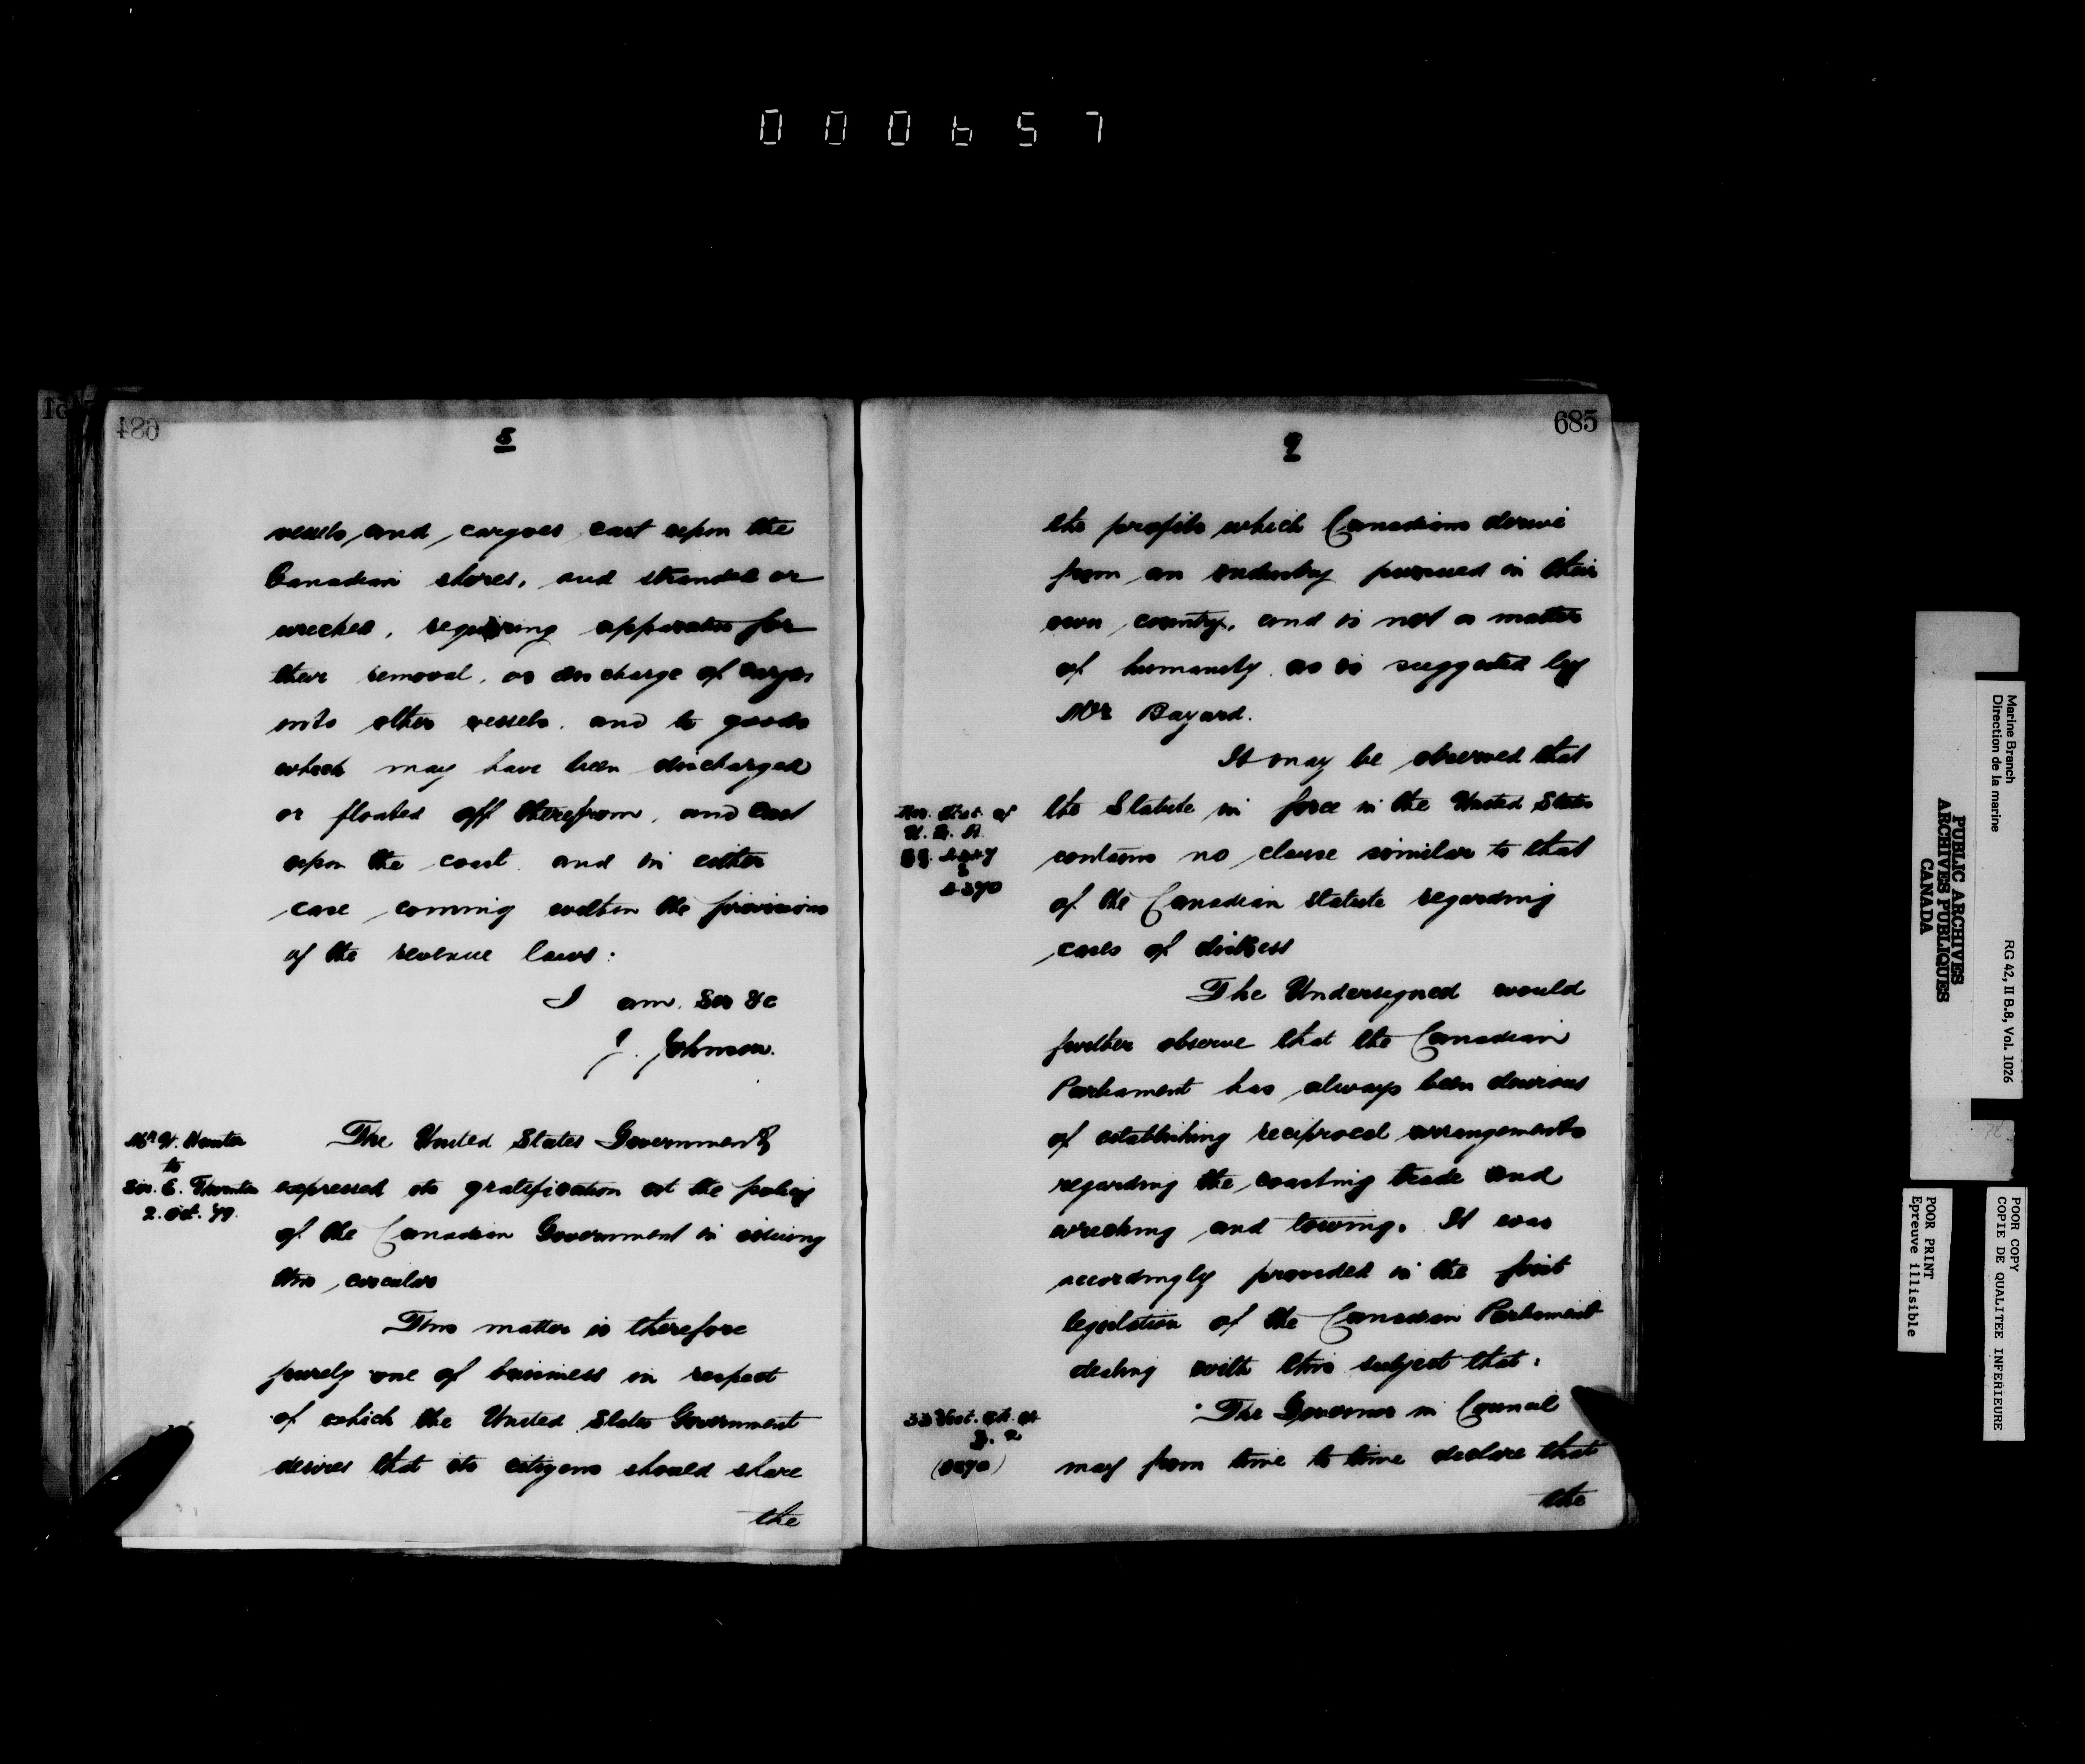 000657
684
8
vessels and cargoes cast upon the
Canadian shores, and stranded or
wrecked, requiring apparatus for
their removal, or discharge of cargos
into other vessels, and to goods
which may have been discharged
or floated off therefrom, and cast
upon the coast and in either
case coming within the provisions
of the revenue laws:
I am, Sir &c
J. Johnson.
Mr W. Hunter
to
Sir. E. Thornton
2. Oct. '79.
The United States Government
expressed its gratification at the policy
of the Canadian Government in issuing
this circular
This matter is therefore
purely one of business in respect
of which the United States Government
desires that its citizens should share
the
685
9
the profits which Canadians derive
from an industry pursued in their
own country, and is not a matter
of humanity as is suggested by
Mr Bayard.
It may be observed that
Rev. Stat. of
U. S. A.
4370
the Statute in force in the United States
contains no clause similar to that
of the Canadian statute regarding
cases of distress
The Undersigned would
further observe that the Canadian
Parliament has always been desirous
of establishing reciprocal arrangements
regarding the coasting trade and
wrecking and towing. It was
accordingly provided in the first
legislation of the Canadian Parliament
dealing with this subject that:
33 Vict. ch.
(1870)
"The Governor in Council
may from time to time declare that
the
Marine Branch
Direction de la marine
RG 42, II B.8, Vol. 1026
PUBLIC ARCHIVES
ARCHIVES PUBLIQUES
CANADA
POOR COPY
COPIE DE QUALITEE INFERIEURE
POOR PRINT
Epreuve illisible